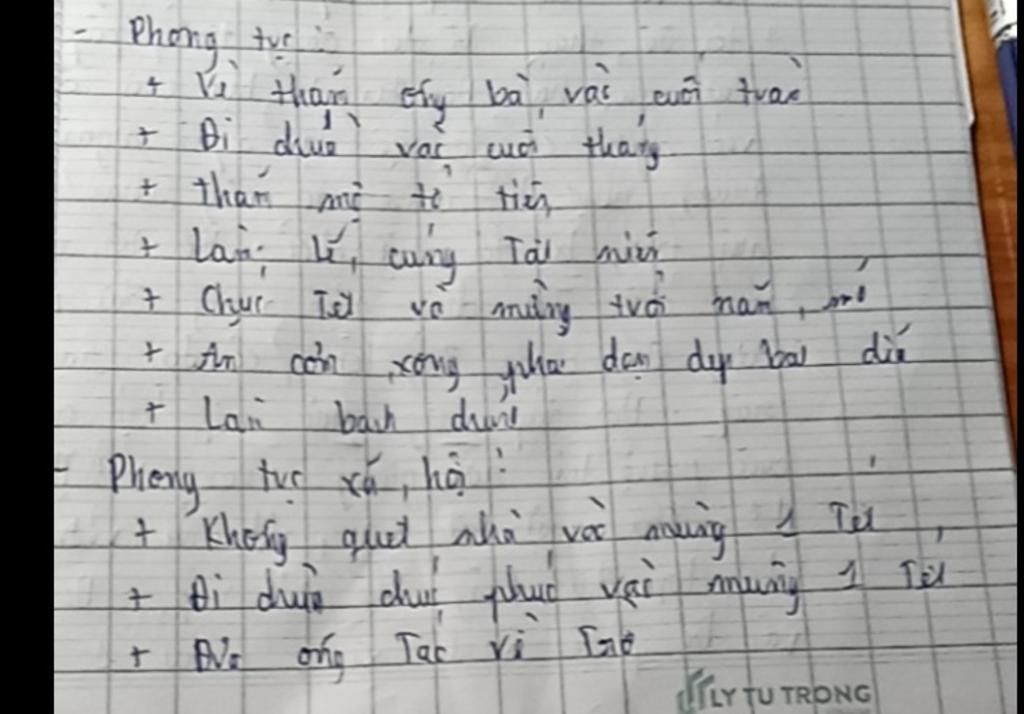 - Phong tục
+ Về thăm ông bà vào cuối tuần
+ Đi chùa vào cuối tháng
+ thăm mộ tổ tiên
+ Làm lễ cúng Tất niên
+ Chúc Tết và mừng tuổi năm mới
+ Ăn cơm xong phải dọn dẹp bát đĩa
+ Làm bánh chưng
- Phong tục xã hội:
+ Không quét nhà vào mùng 1 Tết
+ Đi chùa chúc phúc vào mùng 1 Tết
+ Đưa ông Táo về Trời
LY TU TRONG